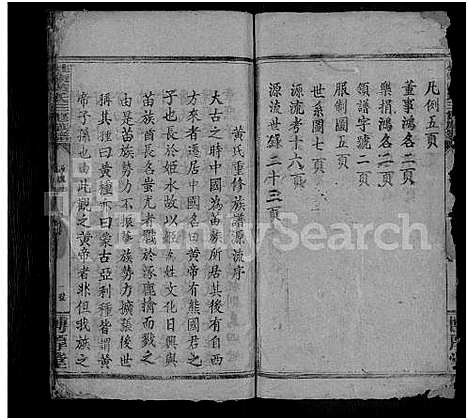 凡例五頁
董事鴻名二頁
樂捐鴻名二頁
領譜字號二頁
服制圖五頁
世系圖七頁
源流考十六頁
源流世錄二十三頁
黃氏重修族譜源流序
大古之時中國為苗族所居其後有自西
方來者遷居中國名曰黃帝有熊國君之
子也長於姬水故以姬為姓文化日興與
苗族酋長名蚩尤者戰於涿鹿擒而戮之
由是苗族勢力不振黃族勢力擴張後世
稱其種曰黃種亦曰蒙古亞利種皆謂黃
帝子孫也由此觀之黃帝者非但我族之
敦厚堂
FamilySearch